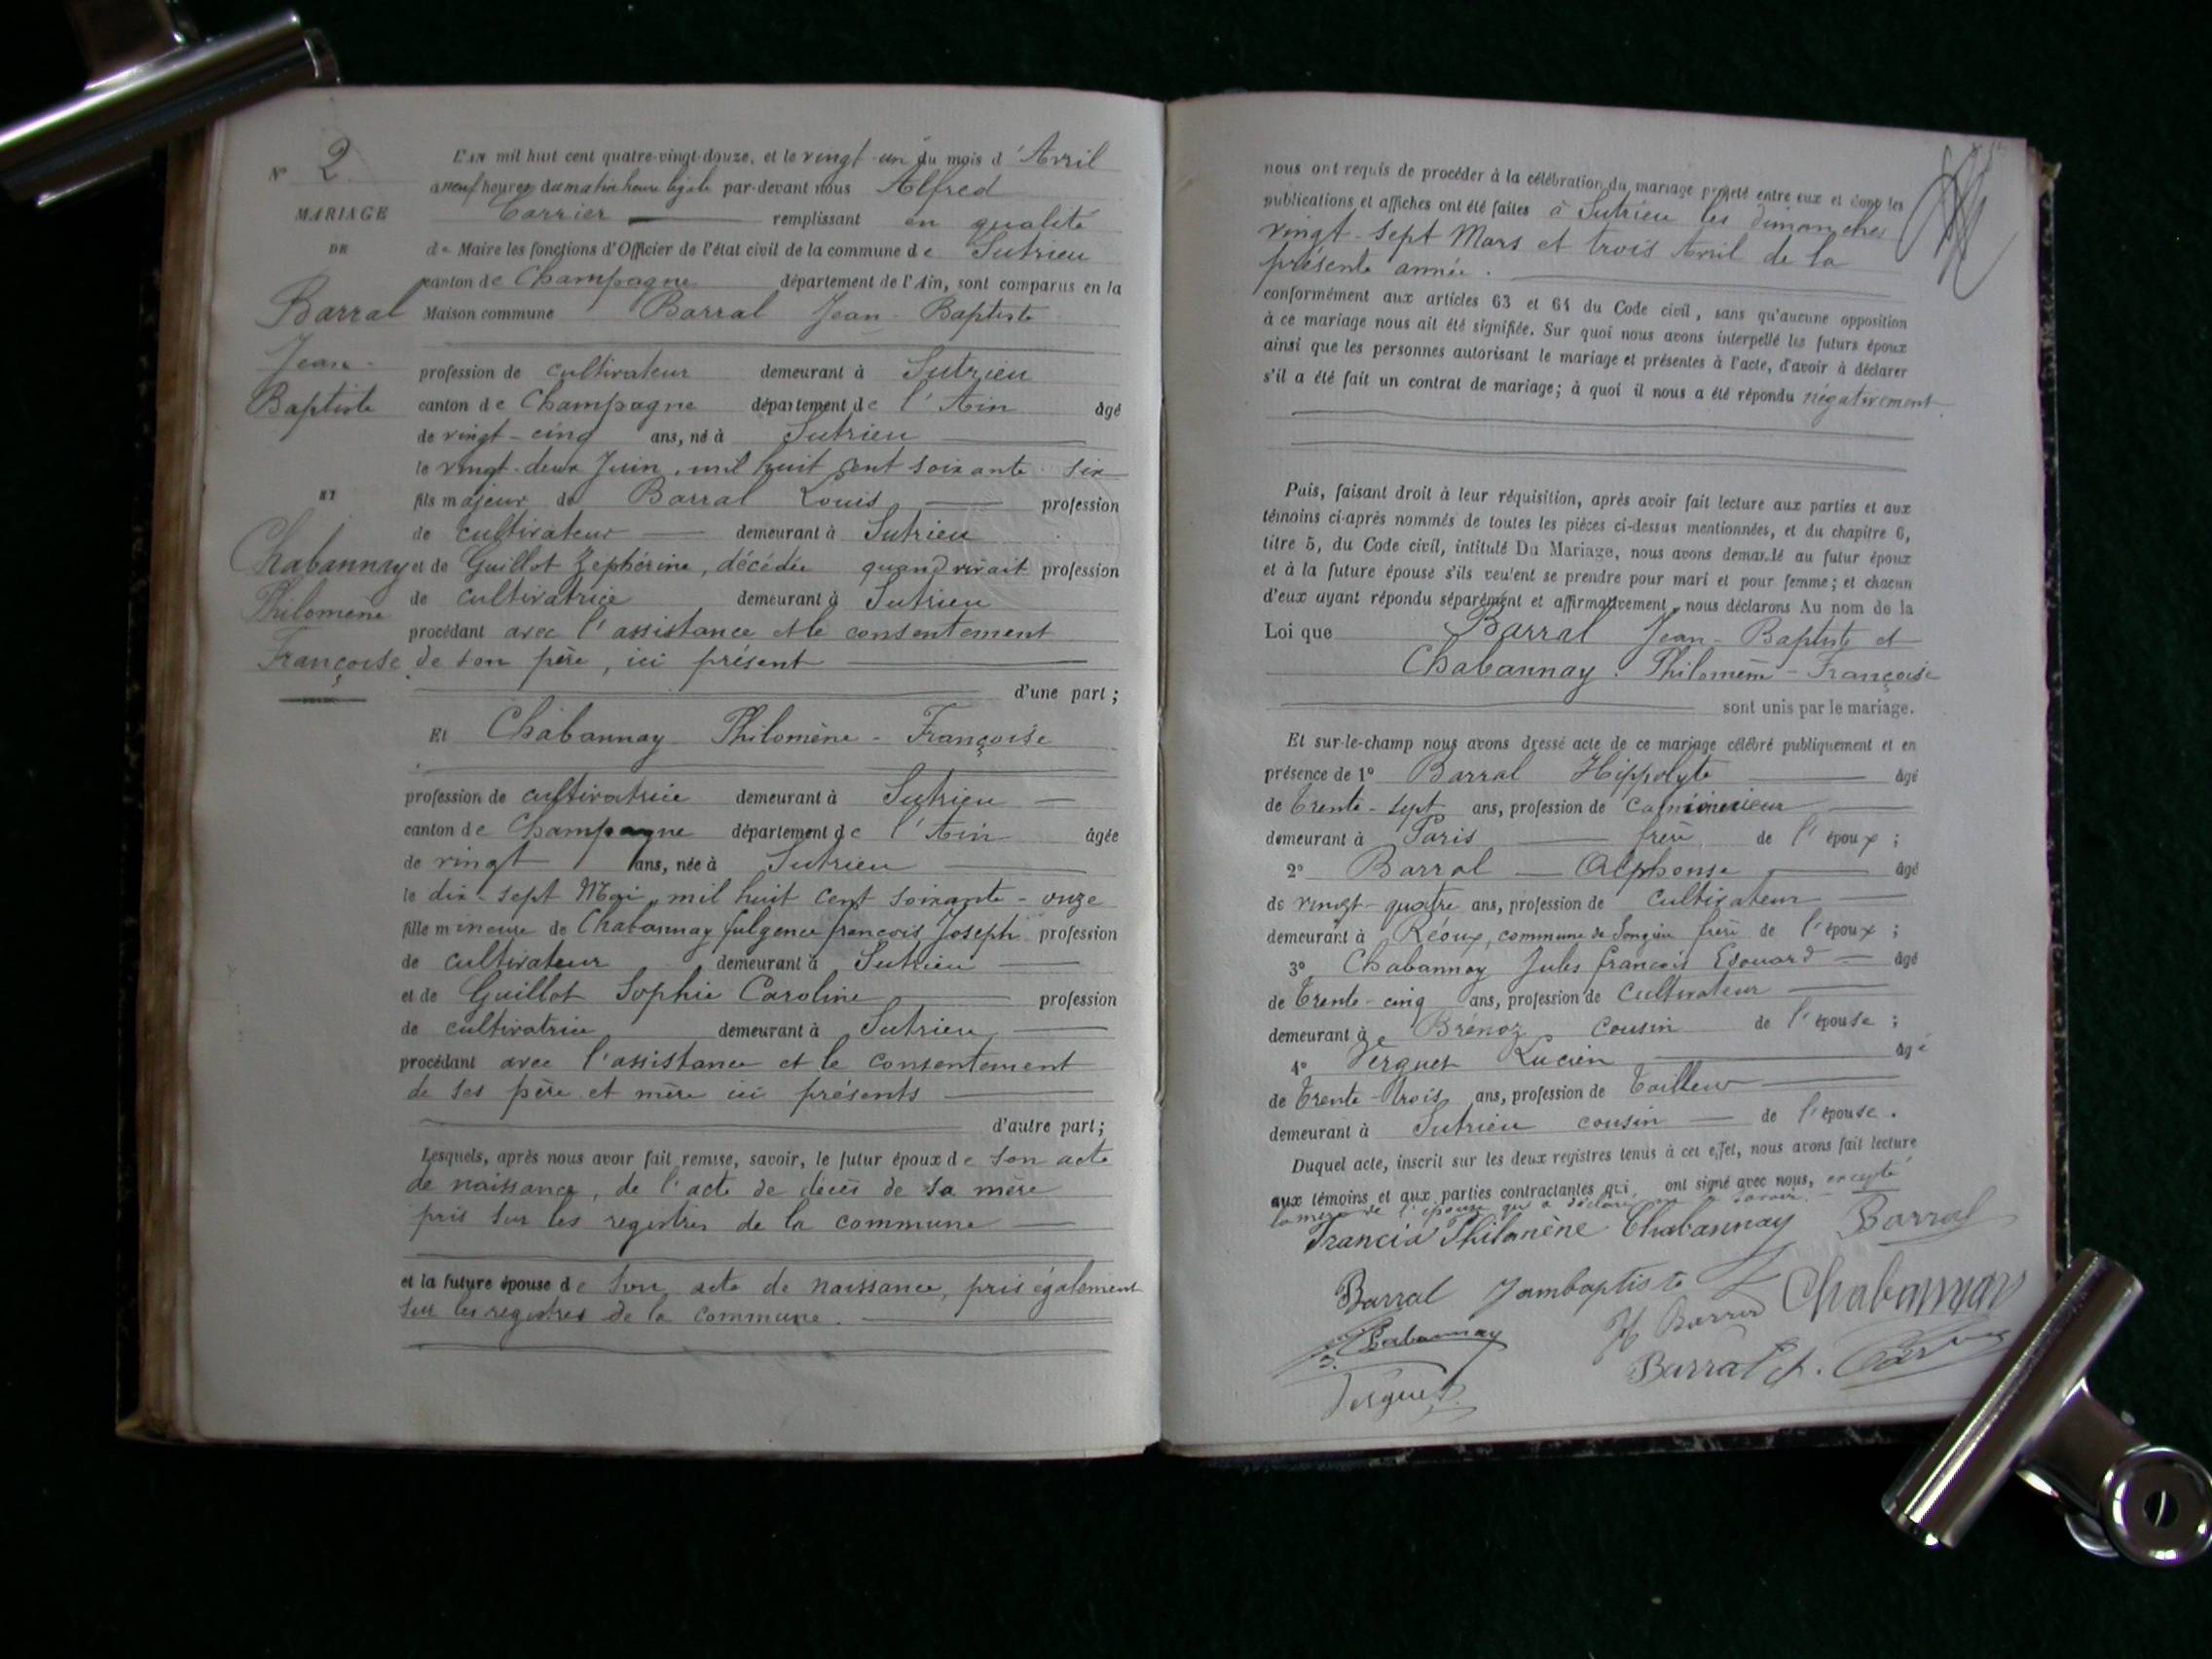 N° 2
MARIAGE
DE
Barral
Jean-
Baptiste
ET
Chabannay
Philomène
Françoise
L'AN mil huit cent quatre-vingt-douze, et le vingt-un du mois d'Avril
à neuf heures du matin heure légale par-devant nous Alfred
Carrier remplissant en qualité
de Maire les fonctions d'Officier de l'état civil de la commune de Sutrieu
canton de Champagne département de l'Ain, sont comparus en la
Maison commune Barral Jean-Baptiste
profession de cultivateur demeurant à Sutrieu
canton de Champagne département de l'Ain âgé
de vingt-cinq ans, né à Sutrieu
le vingt-deux Juin, mil huit cent soixante-six
fils majeur de Barral Louis profession
de cultivateur demeurant à Sutrieu
et de Guillot Zéphérine, décédée quand vivait profession
de cultivatrice demeurant à Sutrieu
procédant avec l'assistance et le consentement
de son père, ici présent
d'une part;
Et Chabannay Philomène-Françoise
profession de cultivatrice demeurant à Sutrieu
canton de Champagne département de l'Ain âgée
de vingt ans, née à Sutrieu
le dix-sept Mai, mil huit cent soixante-onze
fille mineure de Chabannay fulgence françois Joseph profession
de cultivateur demeurant à Sutrieu
et de Guillot Sophie Caroline profession
de cultivatrice demeurant à Sutrieu
procédant avec l'assistance et le consentement
de ses père et mère ici présents
d'autre part;
Lesquels, après nous avoir fait remise, savoir, le futur époux de son acte
de naissance, de l'acte de décès de sa mère
pris sur les registres de la commune
et la future épouse de son acte de naissance, pris également
sur les registres de la commune.
nous ont requis de procéder à la célébration du mariage projeté entre eux et dont les
publications et affiches ont été faites à Sutrieu les dimanches
vingt-sept Mars et trois Avril de la
présente année.
conformément aux articles 63 et 64 du Code civil, sans qu'aucune opposition
à ce mariage nous ait été signifiée. Sur quoi nous avons interpellé les futurs époux
ainsi que les personnes autorisant le mariage et présentes à l'acte, d'avoir à déclarer
s'il a été fait un contrat de mariage; à quoi il nous a été répondu négativement
Puis, faisant droit à leur réquisition, après avoir fait lecture aux parties et aux
témoins ci-après nommés de toutes les pièces ci-dessus mentionnées, et du chapitre 6,
titre 5, du Code civil, intitulé Du Mariage, nous avons demandé au futur époux
et à la future épouse s'ils veulent se prendre pour mari et pour femme; et chacun
d'eux ayant répondu séparément et affirmativement, nous déclarons Au nom de la
Loi que Barral Jean-Baptiste et
Chabannay Philomène-Françoise
sont unis par le mariage.
Et sur-le-champ nous avons dressé acte de ce mariage célébré publiquement et en
présence de 1° Barral Hippolyte âgé
de trente-sept ans, profession de
demeurant à Paris frère de l'époux;
2° Barral Alphonse âgé
de vingt-quatre ans, profession de cultivateur
demeurant à Réoux, commune de Songieu frère de l'époux;
3° Chabannay Jules françois Edouard âgé
de trente-cinq ans, profession de cultivateur
demeurant à Brénoz cousin de l'épouse;
4° Verguet Lucien âgé
de trente-trois ans, profession de tailleur
demeurant à Sutrieu cousin de l'épouse.
Duquel acte, inscrit sur les deux registres tenus à cet effet, nous avons fait lecture
aux témoins et aux parties contractantes qui ont signé avec nous, excepté
la mère de l'épouse qui a déclaré ne savoir.
Philomène Chabannay Barral
Barral Jambaptiste Chabannay
Chabannay
Barral
Verguet